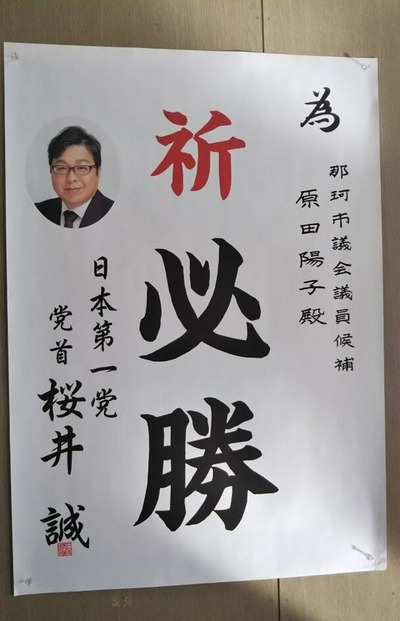 為
那珂市議会議員候補
原田陽子殿
祈必勝
日本第一党
党首 桜井 誠